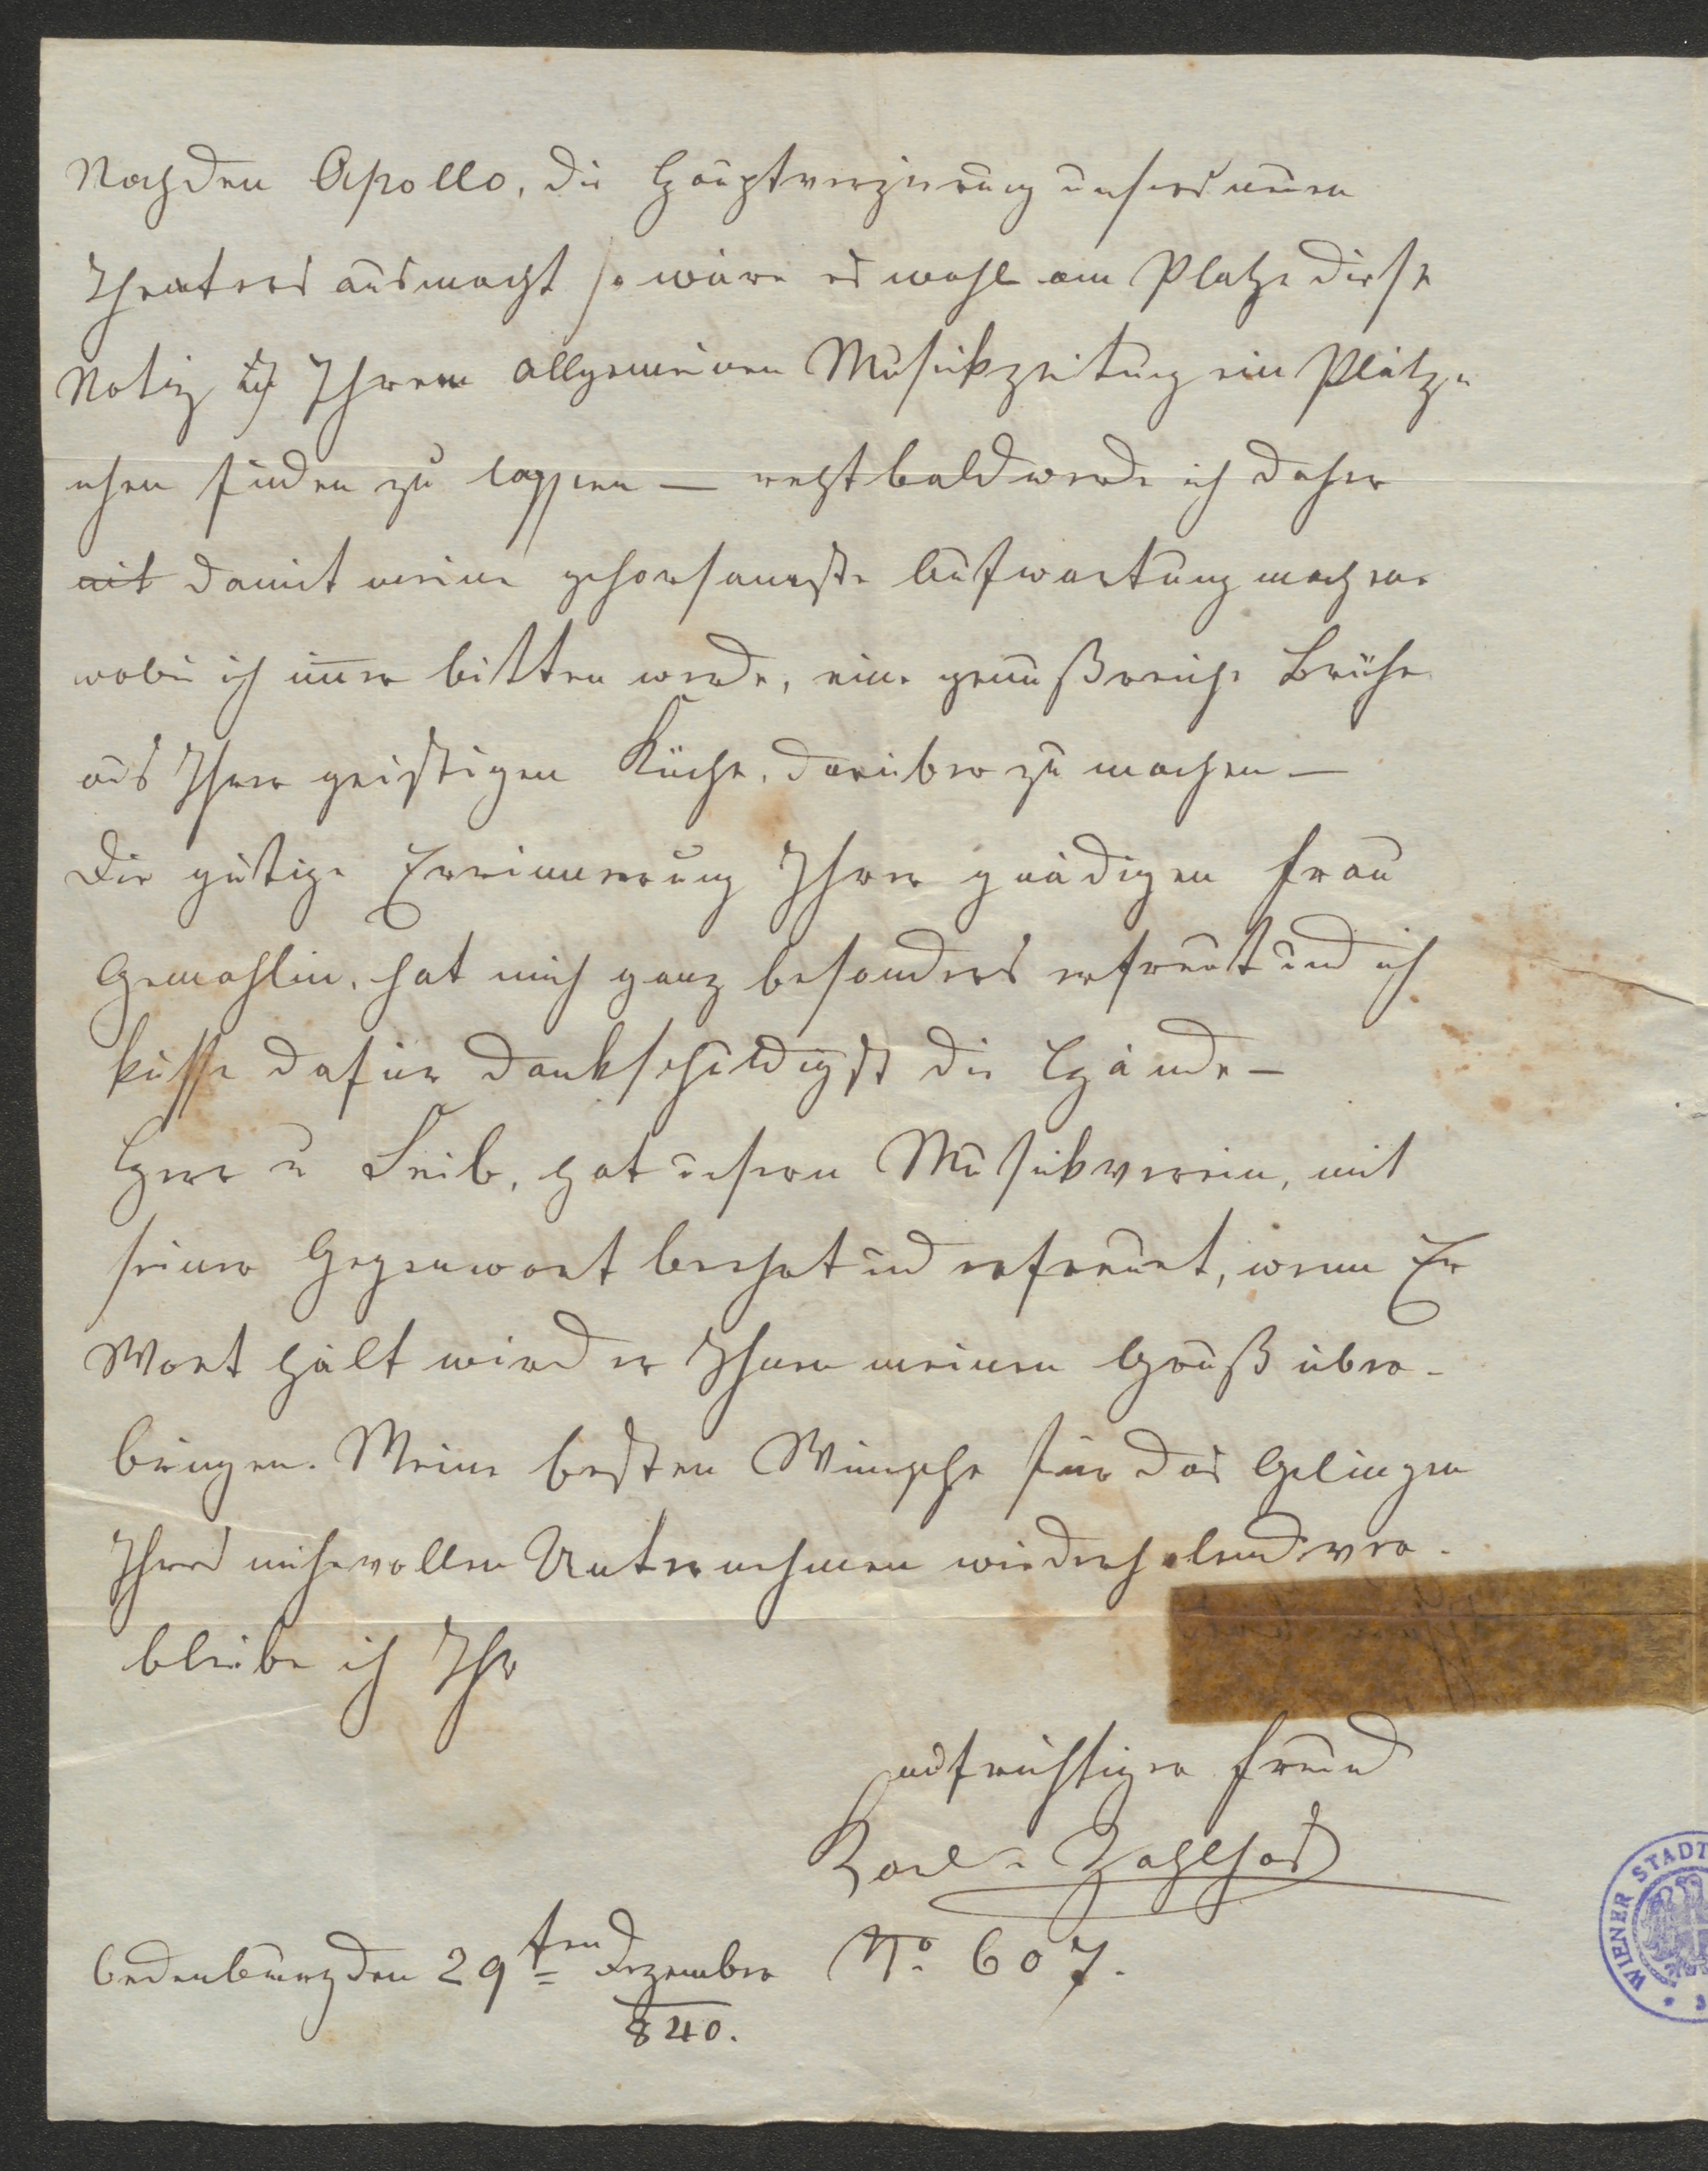 Nachdem Apollo, die Hauptverzierung unsers neuen
Theaters ausmacht so wäre es wohl am Platze diese
Notiz in Ihrem allgemeinen Musikzeitung ein Plätz-
chen finden zu lassen — recht bald werde ich daher
mit damit meine gehorsamste Aufwartung machen
wobei ich immer bitten werde, eine genußreiche Brühe
aus Ihrer geistigen Küche, darüber zu machen —
Die gütige Errinnerung Ihrer gnädigen Frau
Gemahlin, hat mich ganz besonders erfreut und ich
küsse dafür dankschuldigst die Hände —
Herr v Leib, hat unsern Musikverein, mit
seiner Gegenwart beehrt und erfreuet, wenn Er
Wort hält wird er Ihnen meinen Gruß über-
bringen. Meine besten Wünsche für das Gelingen
Ihres mühevollen Unternehmen wiederholend ver-
bleibe ich Ihr
aufrichtiger Freund
Karl v Zahlhas
Oedenburg den 29ten Dezember No 607.
840.
WIENER STADT